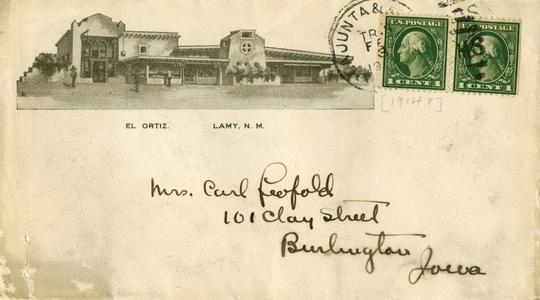 JUNTA &
TR.
FE
19
U.S. POSTAGE
1 CENT 1
U.S. POSTAGE
1 CENT 1
[1914?]
EL ORTIZ. LAMY, N. M.
Mrs. Carl Leopold
101 Clay Street
Burlington
Iowa